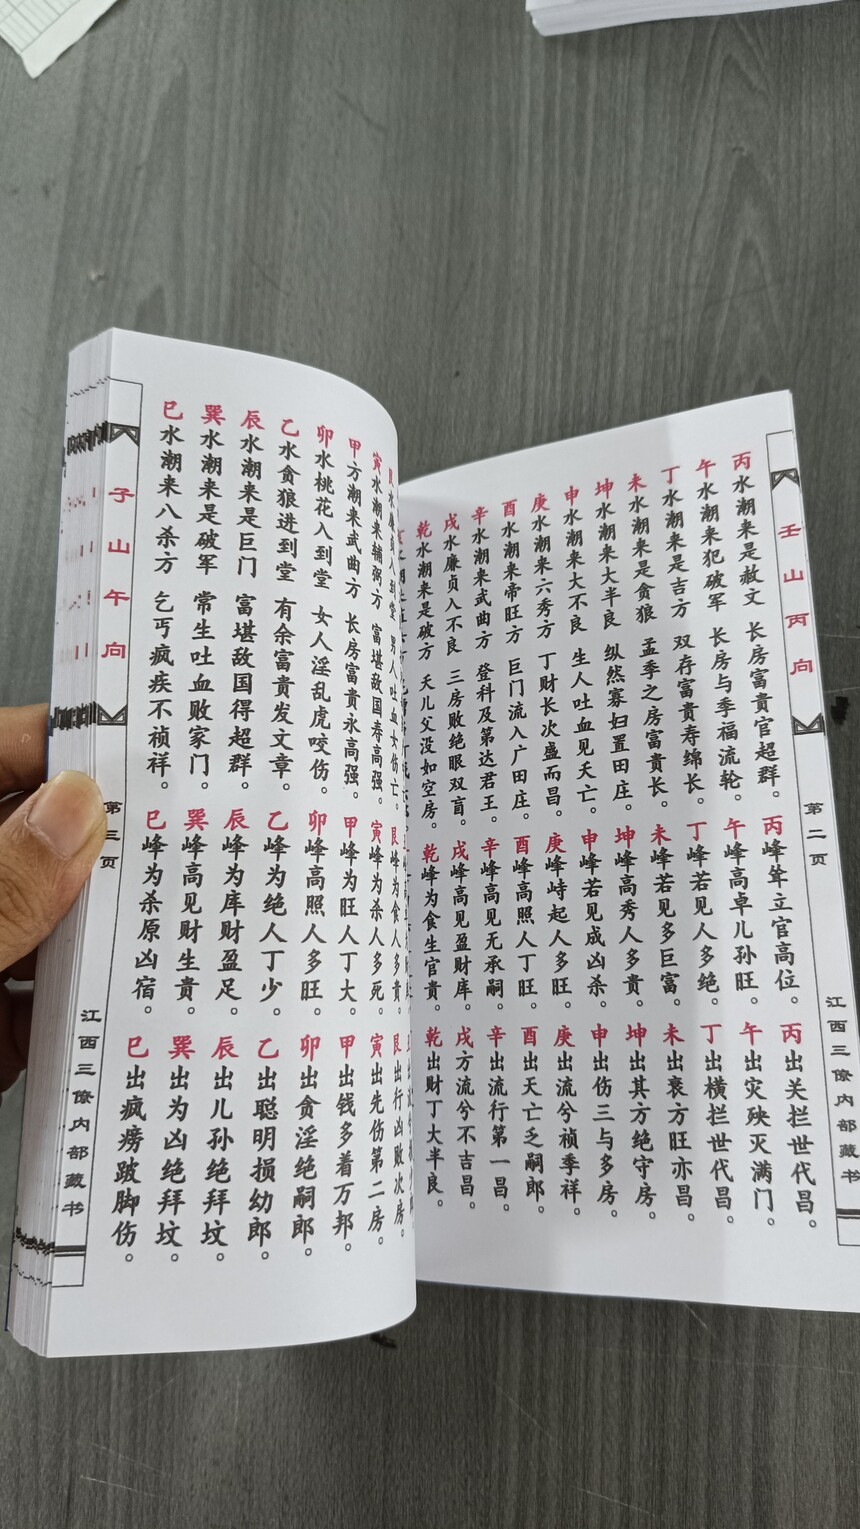 壬山丙向
第二页
江西三僚内部藏书
丙水潮来是赦文 长房富貴官超群。
午水潮来犯破军 长房与季福流轮。
丁水潮来是吉方 双存富貴寿绵长。
未水潮来是贪狼 孟季之房富貴长。
坤水潮来大半良 纵然寡妇置田庄。
申水潮来大不良 生人吐血见夭亡。
庚水潮来六秀方 丁财长次盛而昌。
酉水潮来帝旺方 巨门流入广田庄。
辛水潮来武曲方 登科及第达君王。
戌水廉贞入不良 三房败绝眼双盲。
乾水潮来是破方 夭儿父没如空房。
丙峰耸立官高位。
午峰高卓儿孙旺。
丁峰若见人多绝。
未峰若见多巨富。
坤峰高秀人多貴。
申峰若见成凶杀。
庚峰峙起人多旺。
酉峰高照人丁旺。
辛峰高见无承嗣。
戌峰高见盈财库。
乾峰为食生官貴。
丙出关拦世代昌。
午出灾殃灭满门。
丁出横拦世代昌。
未出衰方旺亦昌。
坤出其方绝守房。
申出伤三与多房。
庚出流兮祯季祥。
酉出夭亡乏嗣郎。
辛出流行第一昌。
戌方流兮不吉昌。
乾出财丁大半良。
艮水廉贞入到堂 男人吐血女伤亡。
寅水潮来辅弼方 富堪敌国寿高强。
甲方潮来武曲方 长房富貴永高强。
卯水桃花入到堂 女人淫乱虎咬伤。
乙水贪狼进到堂 有余富貴发文章。
辰水潮来是巨门 富堪敌国得超群。
巽水潮来是破军 常生吐血败家门。
巳水潮来八杀方 乞丐疯疾不祯祥。
艮峰为食人多貴。
寅峰为杀人多死。
甲峰为旺人丁大。
卯峰高照人多旺。
乙峰为绝人丁少。
辰峰为库财盈足。
巽峰高见财生貴。
巳峰为杀原凶宿。
艮出行凶败次房。
寅出先伤第二房。
甲出钱多着万邦。
卯出贪淫绝嗣郎。
乙出聪明损幼郎。
辰出儿孙绝拜坟。
巽出为凶绝拜坟。
巳出疯痨跛脚伤。
子山午向
第三页
江西三僚内部藏书